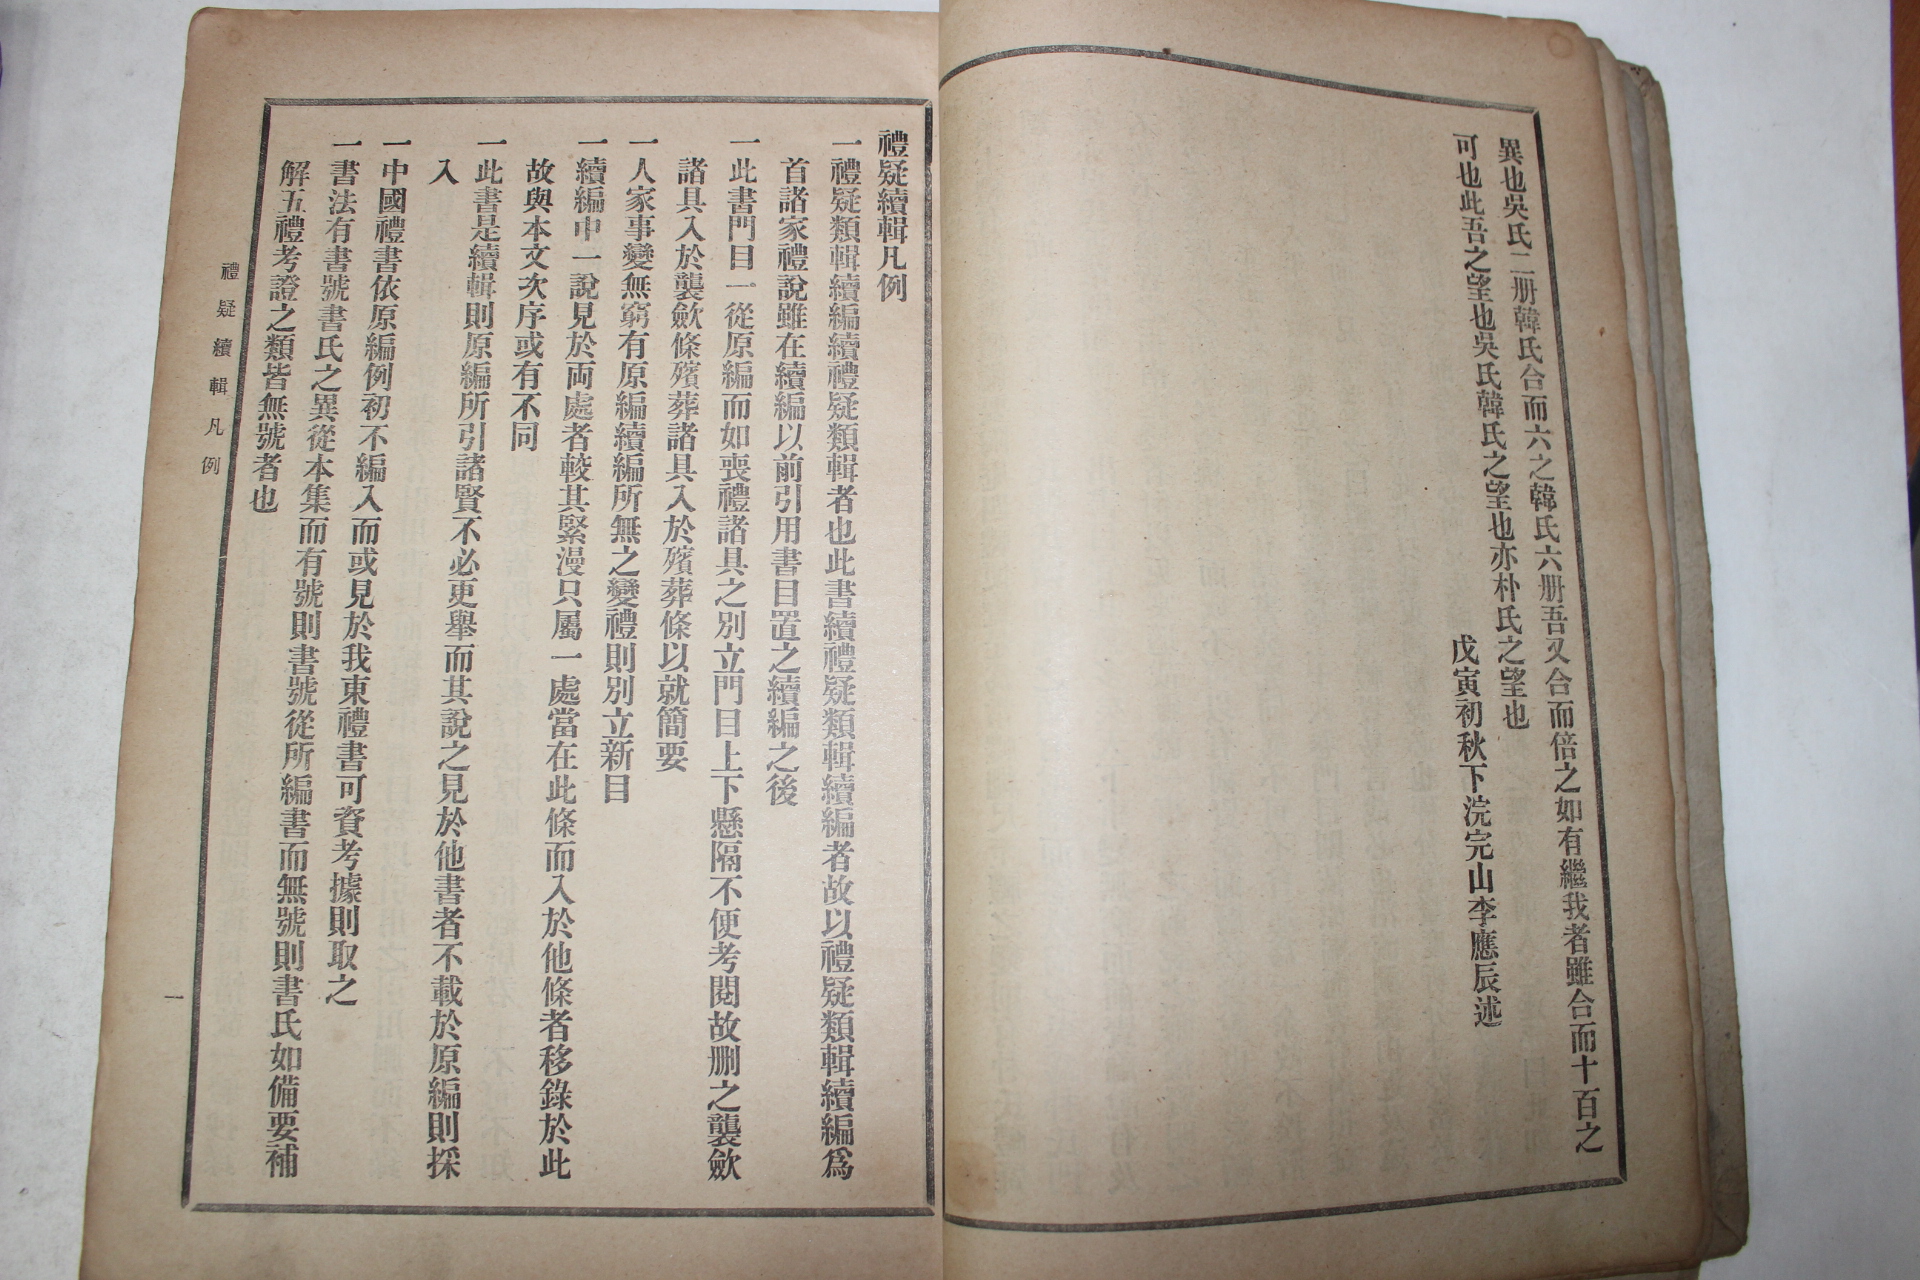 異也吳氏二册韓氏合而六之韓氏六册吾又合而倍之如有繼我者雖合而十百之
可也此吾之望也吳氏韓氏之望也亦朴氏之望也
戊寅初秋下浣完山李應辰述
禮疑續輯凡例
一禮疑類輯續編續禮疑類輯者也此書續禮疑類輯續編者故以禮疑類輯續編爲
首諸家禮說雖在續編以前引用書目置之續編之後
一此書門目一從原編而如喪禮諸具之別立門目上下懸隔不便考閱故删之襲斂
諸具入於襲斂條殯葬諸具入於殯葬條以就簡要
一人家事變無窮有原編續編所無之變禮則別立新目
一續編中一說見於両處者較其緊漫只屬一處當在此條而入於他條者移錄於此
故與本文次序或有不同
一此書是續輯則原編所引諸賢不必更舉而其說之見於他書者不載於原編則採
入
一中國禮書依原編例初不編入而或見於我東禮書可資考據則取之
一書法有書號書氏之異從本集而有號則書號從所編書而無號則書氏如備要補
解五禮考證之類皆無號者也
禮疑續輯凡例
一